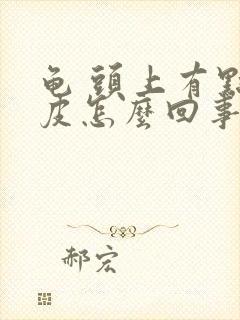 龟頭上有點
皮怎麼回事
郝宏